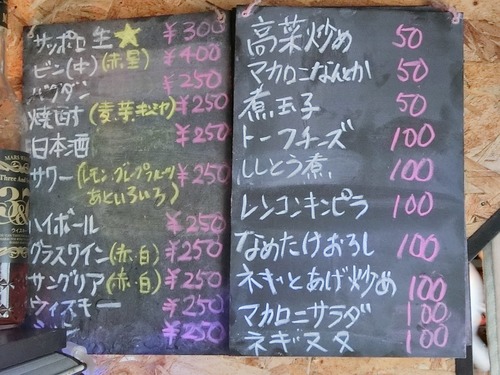 サッポロ生★ ¥300
ビン(中)(赤星) ¥400
¥250
焼酎(麦芋キンミヤ) ¥250
日本酒 ¥250
サワー(レモン、グレープフルーツ ¥250
あといろいろ)
ハイボール ¥250
グラスワイン(赤・白) ¥250
サングリア(赤・白) ¥250
ウィスキー ¥250
¥250
高菜炒め 50
マカロニなんとか 50
煮玉子 50
トーフチーズ 100
ししとう煮 100
レンコンキンピラ 100
なめたけおろし 100
ネギとあげ炒め 100
マカロニサラダ 100
ネギヌタ 100